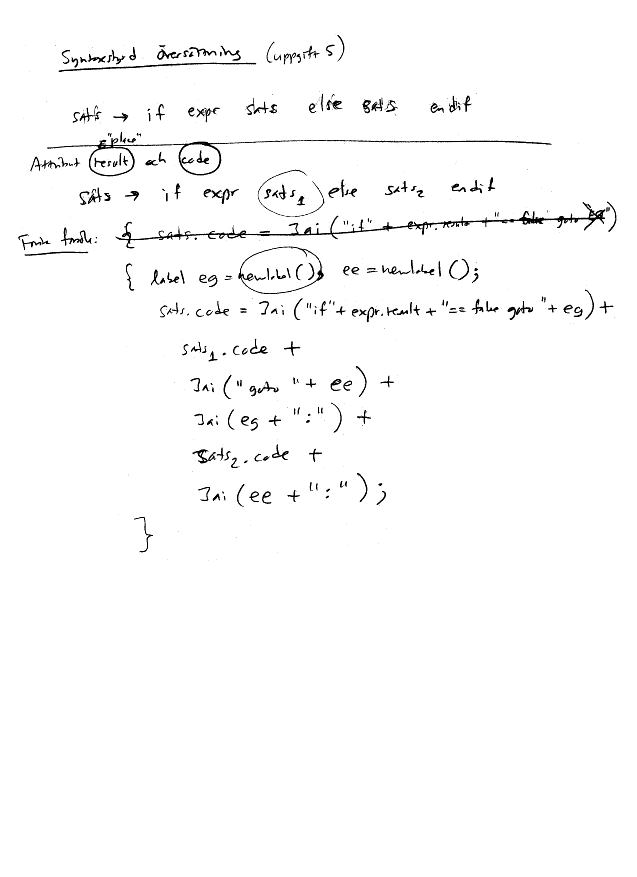 Syntaxstyrd översättning (uppgift 5)
sats → if expr sats else sats endif
"place"
Attribut result och code
sats → if expr sats1 else sats2 endif
{ sats.code = 3ai("if" + expr.result + "== false goto
{ label eg = newlabel(); ee = newlabel();
sats.code = 3ai("if" + expr.result + "== false goto " + eg) +
sats1.code +
3ai("goto " + ee) +
3ai(eg + ":") +
sats2.code +
3ai(ee + ":");
}